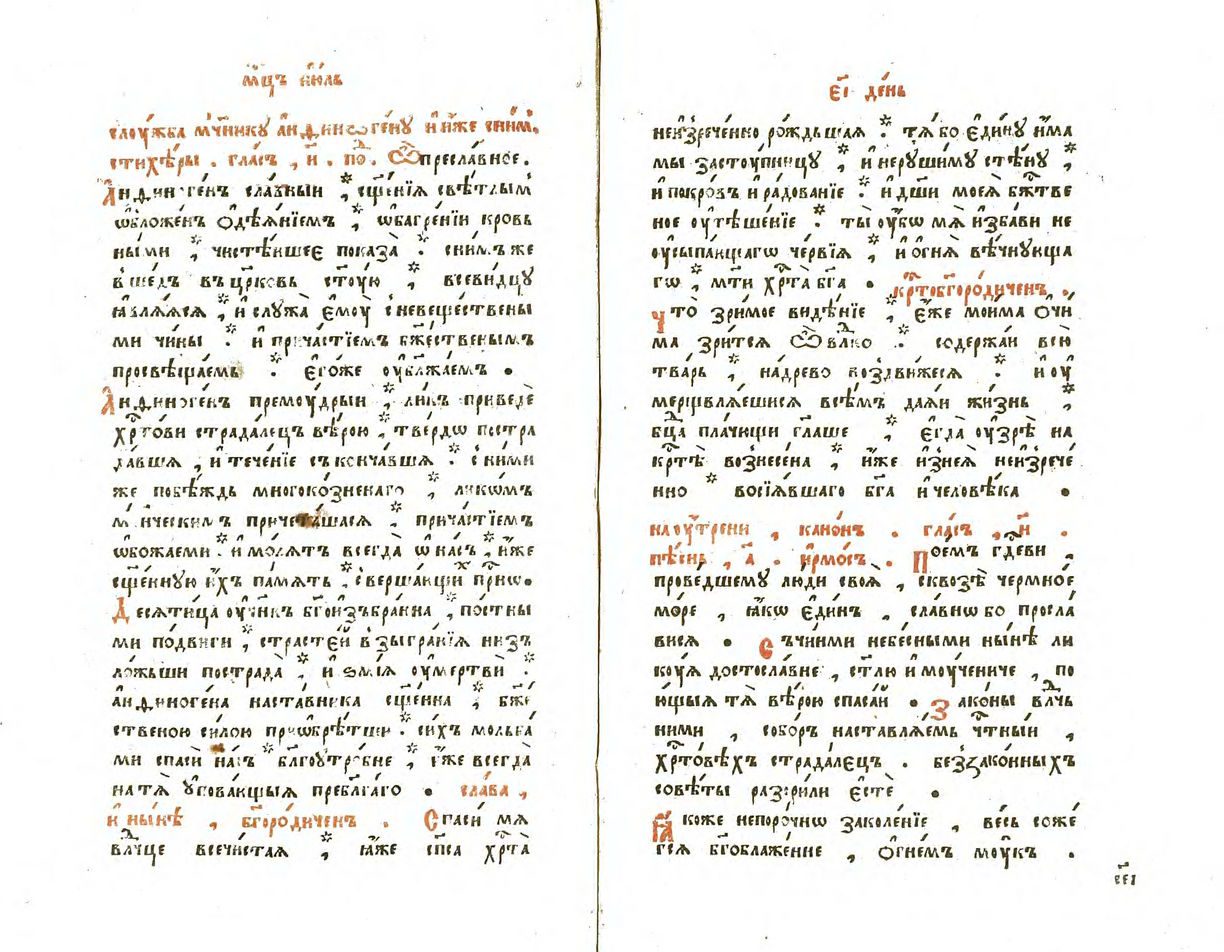 мⷭ҇цъ ию́ль
слоу́жба мч҃нику а҆ндиногѐну и҆и҆́же сни́мъ.
стихе́ры . гла́съ , и҃ . пѡⷣ. Ѽпресла́вное .
А҆ндиноге́нъ сла́вныи , сщ҃е́нїѧ свѣ́тлымъ
ѡ҆бложе́нъ ѻ҆дѣѧ́нїемъ , ѡ҆багре́нїи кровь
ны́ми , чистѣ́ишеє показа̀ . сни́мъже
вше́дъ въцр҃ковь ст҃ую , всеви́дцу
ꙗ҆влѧ́ѧсѧ , и҆ служа̀ є҆моу̀ сневеще́ствены
ми чи́ны . и҆ прича́стїемъ бж҃е́ственымъ
просвѣща́емь . є҆го́же оу҆блажа́емъ .
А҆ндиноге́нъ премоу́дрыи , ли́къ приведѐ
хрⷭ҇то́ви страда́лецъ вѣ́рою , тве́рдѡ постра
да́вшѧ , и҆ тече́нїе съконча́вшѧ . сни́ми
же побѣ́ждь многоко́зненаго , ли́кѡмъ
мч҃ническимъ причета́шасѧ , прича́стїемъ
ѡ҆божа́еми . и҆ мо́лѧтъ всегда̀ ѡ҆ на́съ , и҆́же
сщ҃е́нную и҆́хъ па́мѧть , соверша́ющи при́снѡ.
Десѧти́ца оу҆чн҃къ бг҃ои҆збра́нна , по́стны
ми по́двиги , страсте́й взыгра́нїѧ ни́зъ
ло́жьши пострада̀ , и҆ ѕмі́ѧ оу҆мертвѝ .
а҆ндиноге́на наста́вника сщ҃е́нна , бж҃е́
ственою си́лою приѡ҆брѣ́тши . си́хъ мольба́
ми спасѝ на́съ бл҃гоу́тробне , и҆́же всегда̀
натѧ̀ оу҆пова́ющыѧ пребл҃га́го . сла́ва ,
и҆ ны́нѣ , бг҃оро́диченъ . Спаси́ мѧ
влⷣчце всечи́стаѧ , ꙗ҆́же сп҃са хрⷭ҇та̀
е҃і де́нь
неи҆зрече́нно ро́ждьшаѧ . тѧ́ бо є҆ди́ну и҆́ма
мы засту́пницу , и҆ неруши́му стѣ́ну ,
и҆ покро́въ и҆ ра́дованїе . и҆ дш҃и мое́ѧ бж҃стве
ное оу҆тѣше́нїе . ты̀ оу҆́бѡ мѧ̀ и҆зба́ви не
оу҆сыпа́ющагѡ че́рвїѧ , и҆ ѻ҆гнѧ̀ вѣ́чнующа
гѡ , мт҃и хрⷭ҇та̀ бг҃а . крⷭ҇тобг҃оро́диченъ .
Что̀ зри́мое видѣ́нїе , є҆́же мои́ма ѻ҆чи
ма зри́тсѧ Ѽ влⷣко . содержа́и всю̀
тва́рь , надре́во воздви́жесѧ . и҆ оу҆
мерщвлѧ́ешисѧ всѣ́мъ даѧ́и жи́знь ,
бц҃а пла́чющи гл҃аше , є҆гда̀ оу҆зрѣ̀ на
крⷭ҇тѣ̀ вознесе́на , и҆́же и҆знеѧ̀ неи҆зрече́
нно восїѧ́вшаго бг҃а и҆ человѣ́ка .
на оу҆́трени , кано́нъ . гла́съ , и҃ .
пѣ́снь , а҃ . и҆рмо́съ . Пое́мъ гдⷭ҇еви ,
прове́дшему лю́ди своѧ̀ , сквозѣ̀ чермно́е
мо́ре , ꙗ҆́кѡ є҆ди́нъ , сла́внѡ бо просла́
висѧ . Съчи́нми небе́сными ны́нѣ ли
ку́ѧ достосла́вне , ст҃лю и҆ моу́чениче , по
ю́щыѧ тѧ̀ вѣ́рою спаса́й . Зако́ны влⷣчь
ними , собо́ръ наставлѧ́емь чⷭ҇тны́и ,
хрⷭ҇то́вѣхъ страда́лецъ . беззако́нныхъ
совѣ́ты разори́ли є҆стѐ .
Ꙗ҆́коже непоро́чнѡ заколе́нїе , ве́сь соже́
гсѧ бг҃облаже́нне , ѻ҆гне́мъ моу́къ .
се҃і